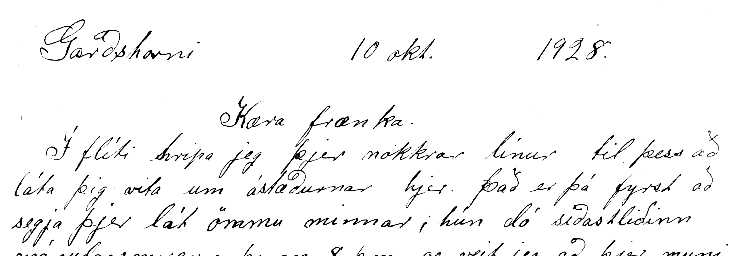 Garðshorni 10 okt. 1928.
Kæra frænka.
Í flíti hripa jeg þjer nokkrar línur til þess að
láta þig vita um ástæðurnar hjer. Það er þá fyrst að
segja þjer lát ömmu minnar, hún dó síðastliðinn
og veit jeg að þjer muni